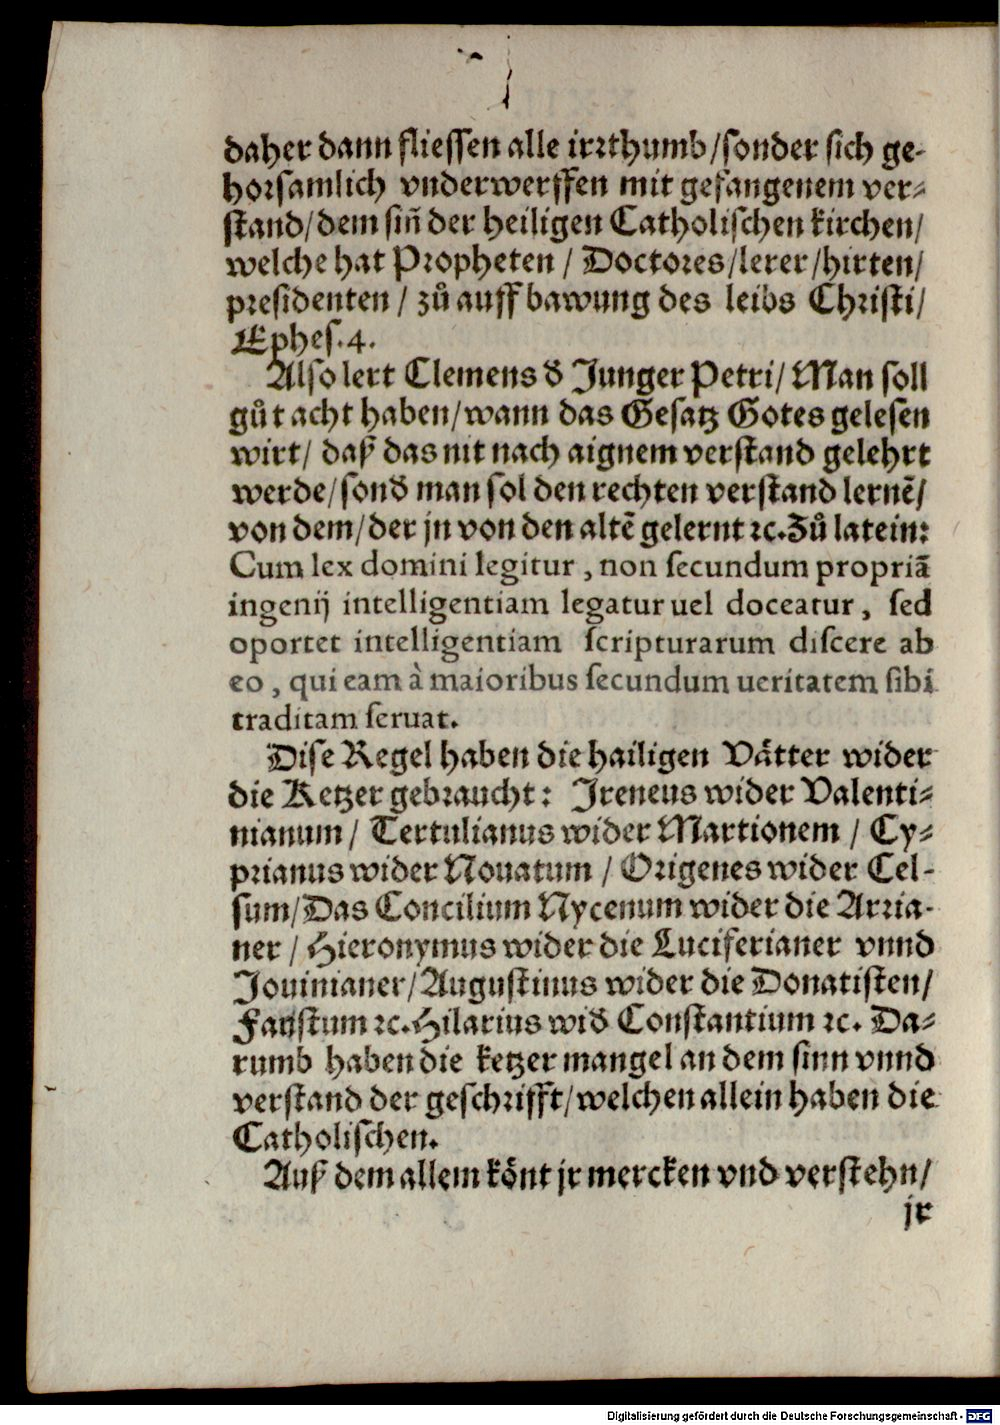 daher dann fliessen alle irrthumb/sonder sich ge-
horsamlich vnderwerffen mit gefangenem ver-
stand/dem siñ der heiligen Catholischen kirchen/
welche hat Propheten / Doctores/lerer/hirten/
presidenten / zů auffbawung des leibs Christi/
Ephes.4.
Also lert Clemens đ Junger Petri/ Man soll
gůt acht haben/wann das Gesatz Gotes gelesen
wirt/ daß das nit nach aignem verstand gelehrt
werde/sonđ man sol den rechten verstand lernẽ/
von dem/der jn von den altẽ gelernt ꝛc.Zů latein:
Cum lex domini legitur, non ſecundum propriã
ingenij intelligentiam legatur uel doceatur, ſed
oportet intelligentiam ſcripturarum diſcere ab
eo, qui eam à maioribus ſecundum ueritatem ſibi
traditam ſeruat.
Dise Regel haben die hailigen Vätter wider
die Ketzer gebraucht: Jreneus wider Valenti-
nianum/ Tertulianus wider Martionem / Cy-
prianus wider Nouatum / Origenes wider Cel-
sum/Das Concilium Nycenum wider die Arria-
ner / Hieronymus wider die Luciferianer vnnd
Jouinianer/Augustinus wider die Donatisten/
Faustum ꝛc.Hilarius wiđ Constantium ꝛc. Da-
rumb haben die ketzer mangel an dem sinn vnnd
verstand der geschrifft/welchen allein haben die
Catholischen.
Auß dem allem könt jr mercken vnd verstehn/
jr
Digitalisierung gefördert durch die Deutsche Forschungsgemeinschaft - DFG